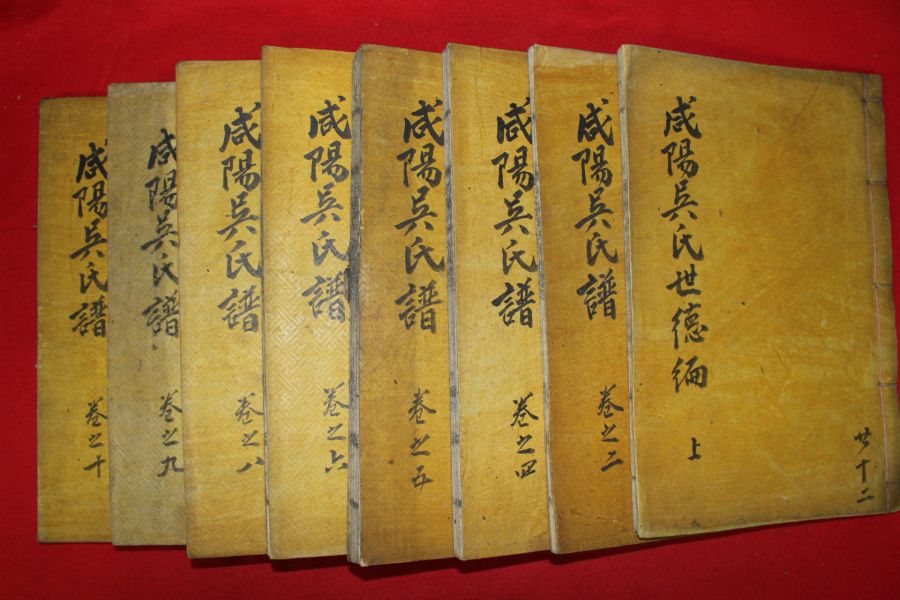 咸陽吳氏世德編
上
共十二
咸陽吳氏譜
卷之二
咸陽吳氏譜
卷之四
咸陽吳氏譜
卷之五
咸陽吳氏譜
卷之六
咸陽吳氏譜
卷之八
咸陽吳氏譜
卷之九
咸陽吳氏譜
卷之十